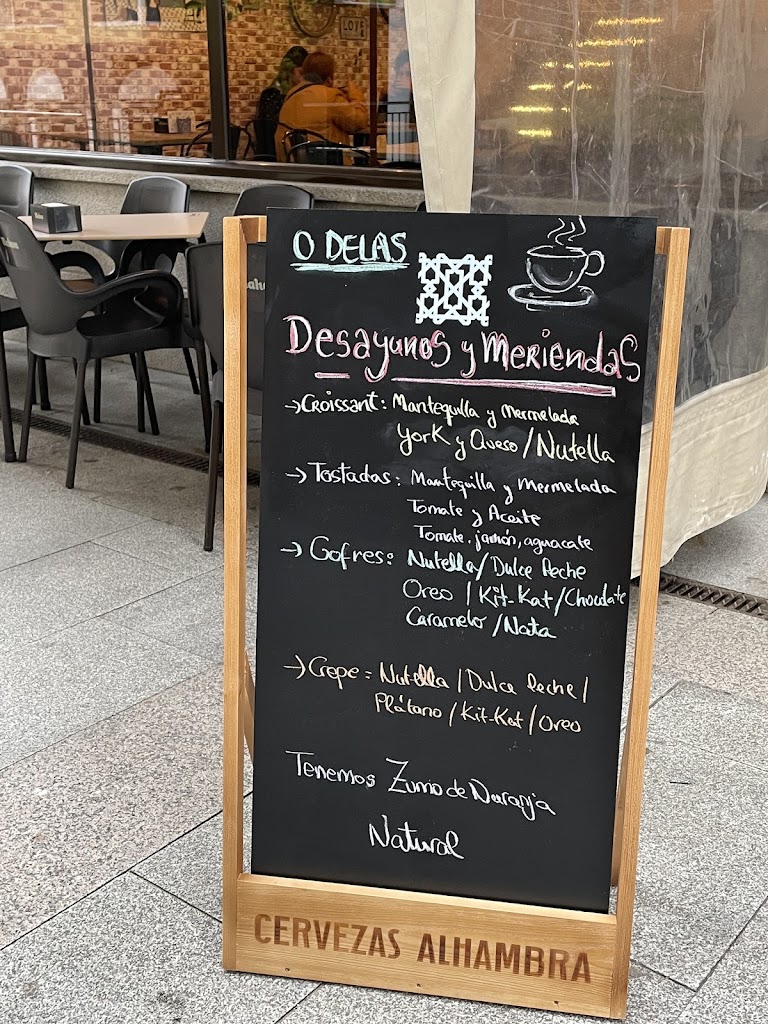 LOVE
O DELAS
Desayunos y Meriendas
→Croissant: Mantequilla y Mermelada
York y Queso/Nutella
→Tostadas: Mantequilla y Mermelada
Tomate y Aceite
Tomate, jamón, aguacate
→ Gofres: Nutella/Dulce leche
Oreo / Kit-Kat/Chocolate
Caramelo /Nata
→Crepe: Nutella/Dulce leche/
Plátano/Kit-Kat/Oreo
Tenemos Zumo de Naranja
Natural
CERVEZAS ALHAMBRA